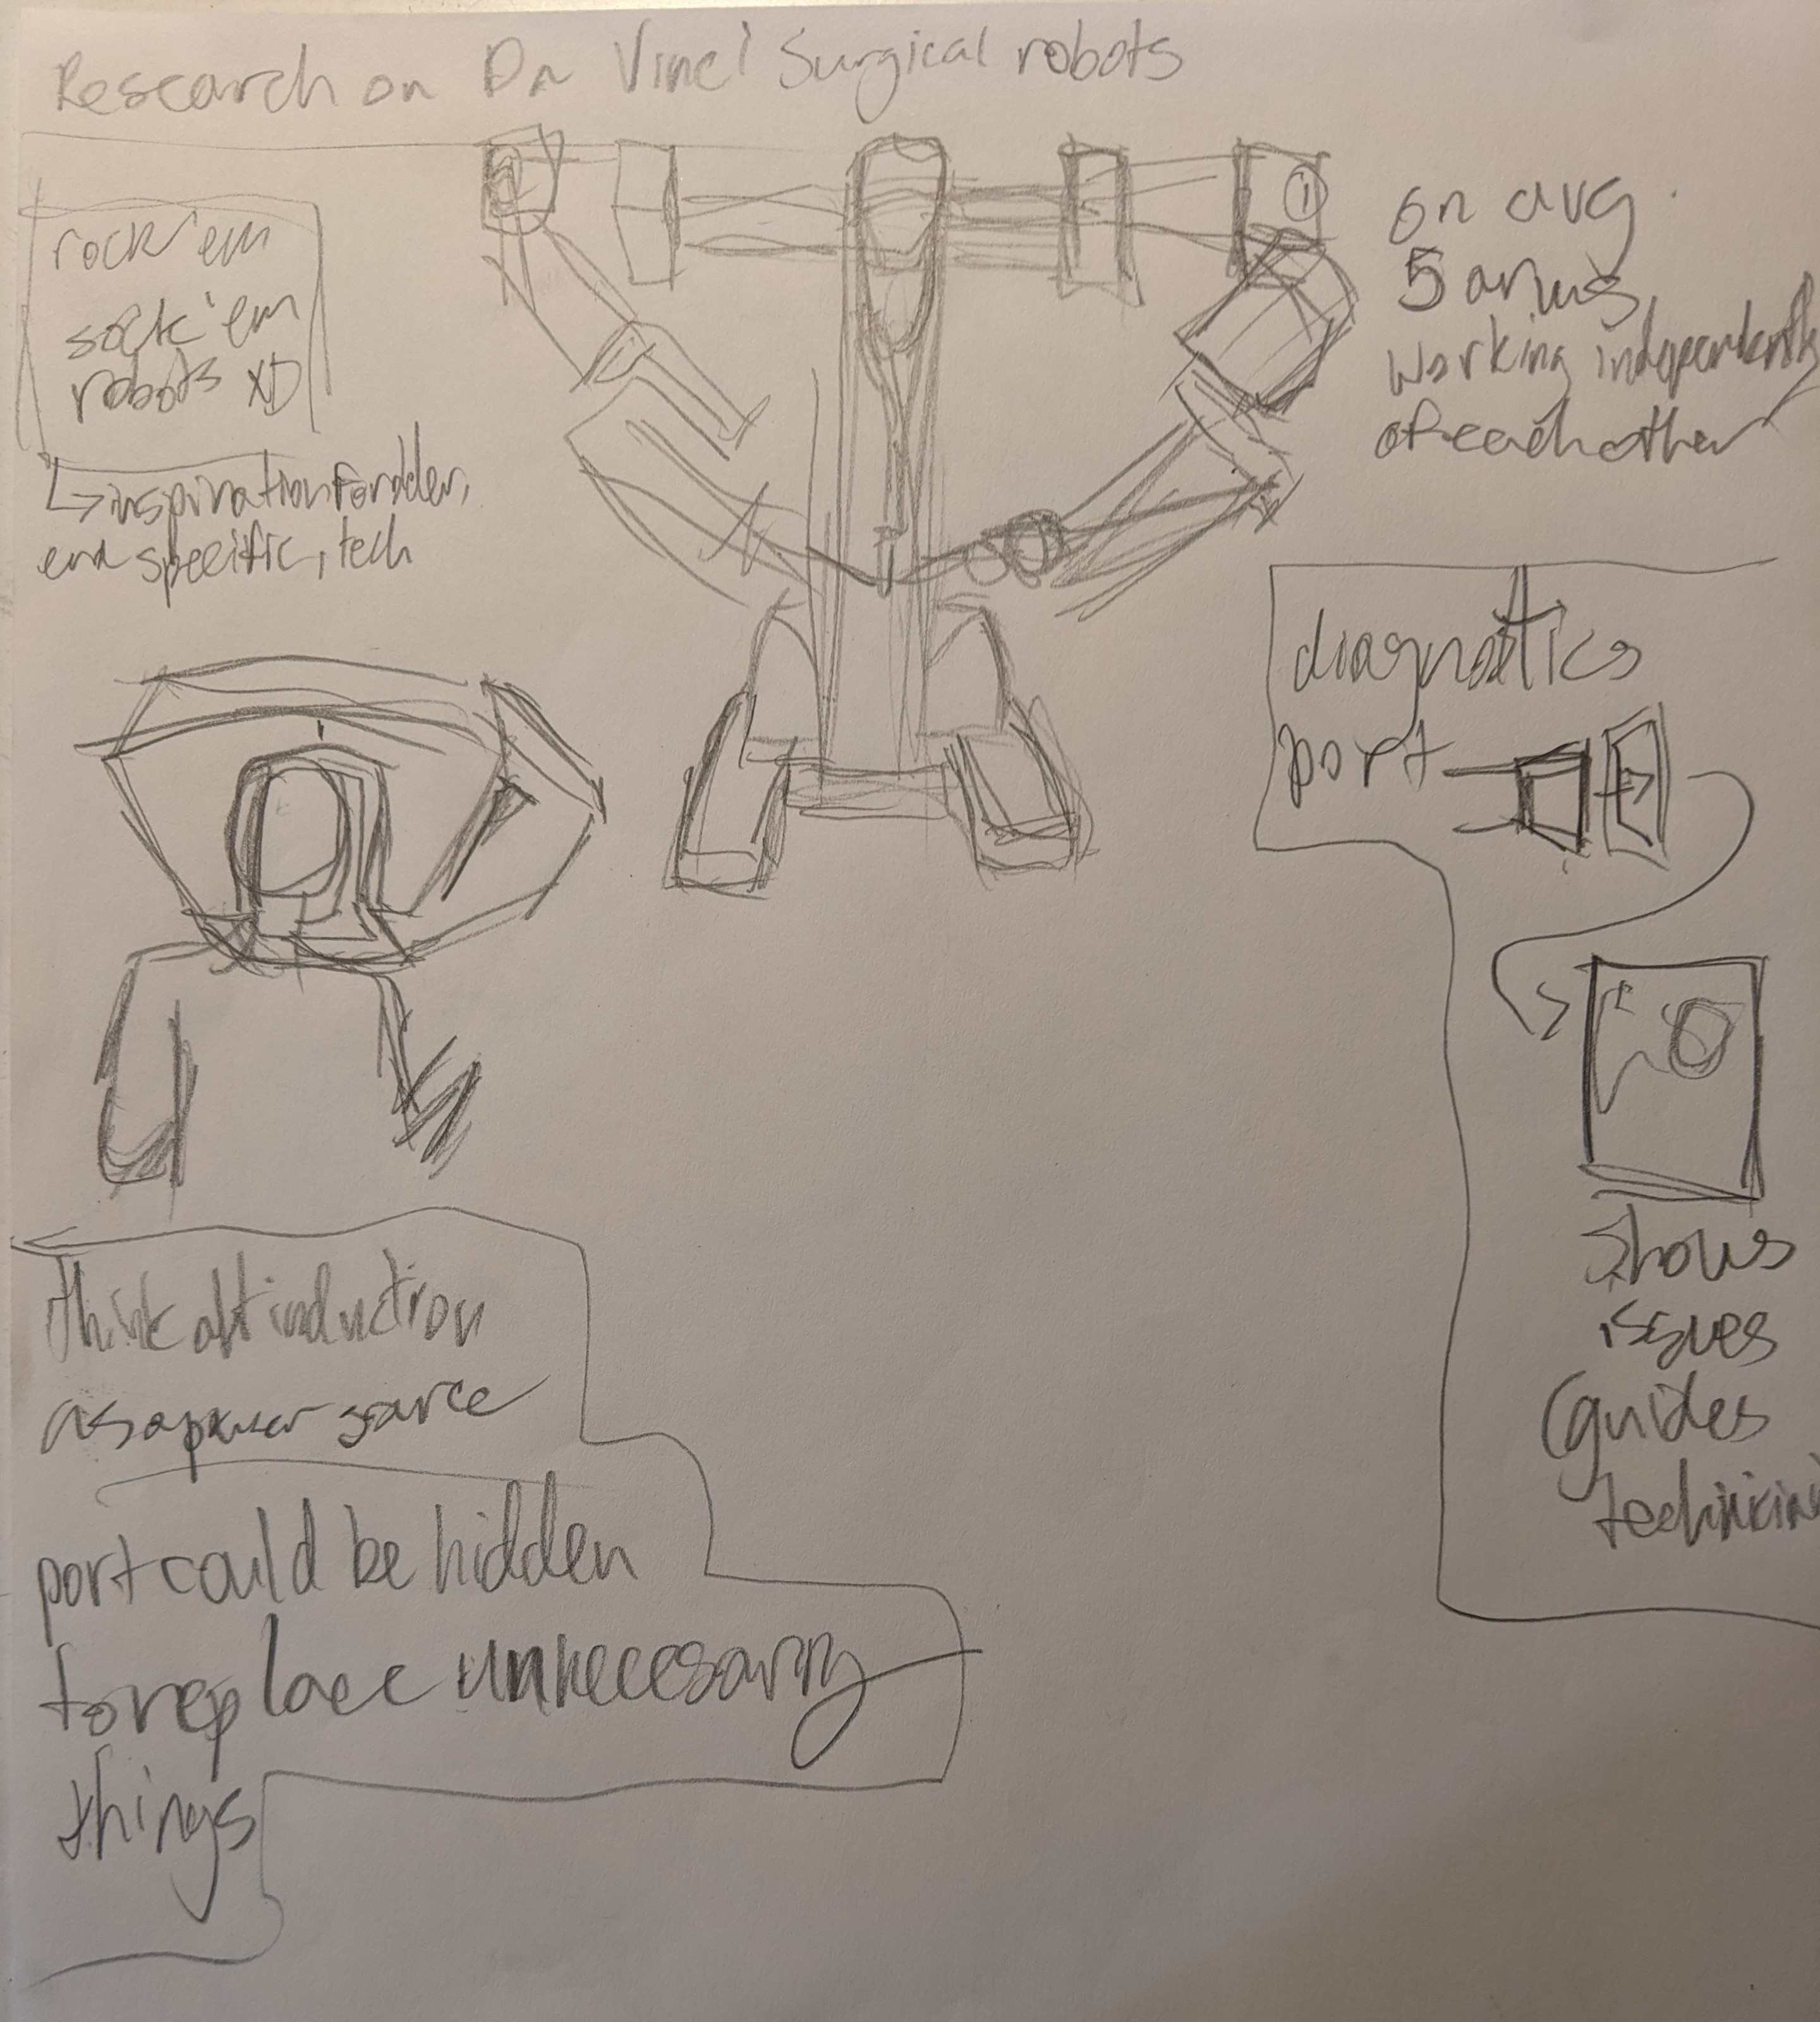 Research on Da Vinci Surgical robots
rock 'em
sock 'em
robots XD
inspiration for older,
era specific, tech
on avg.
5 arms
working independently
of each other
diagnostics
port
shows
issues
(guides
think abt induction
as a power source
port could be hidden
to replace unnecesarry
things